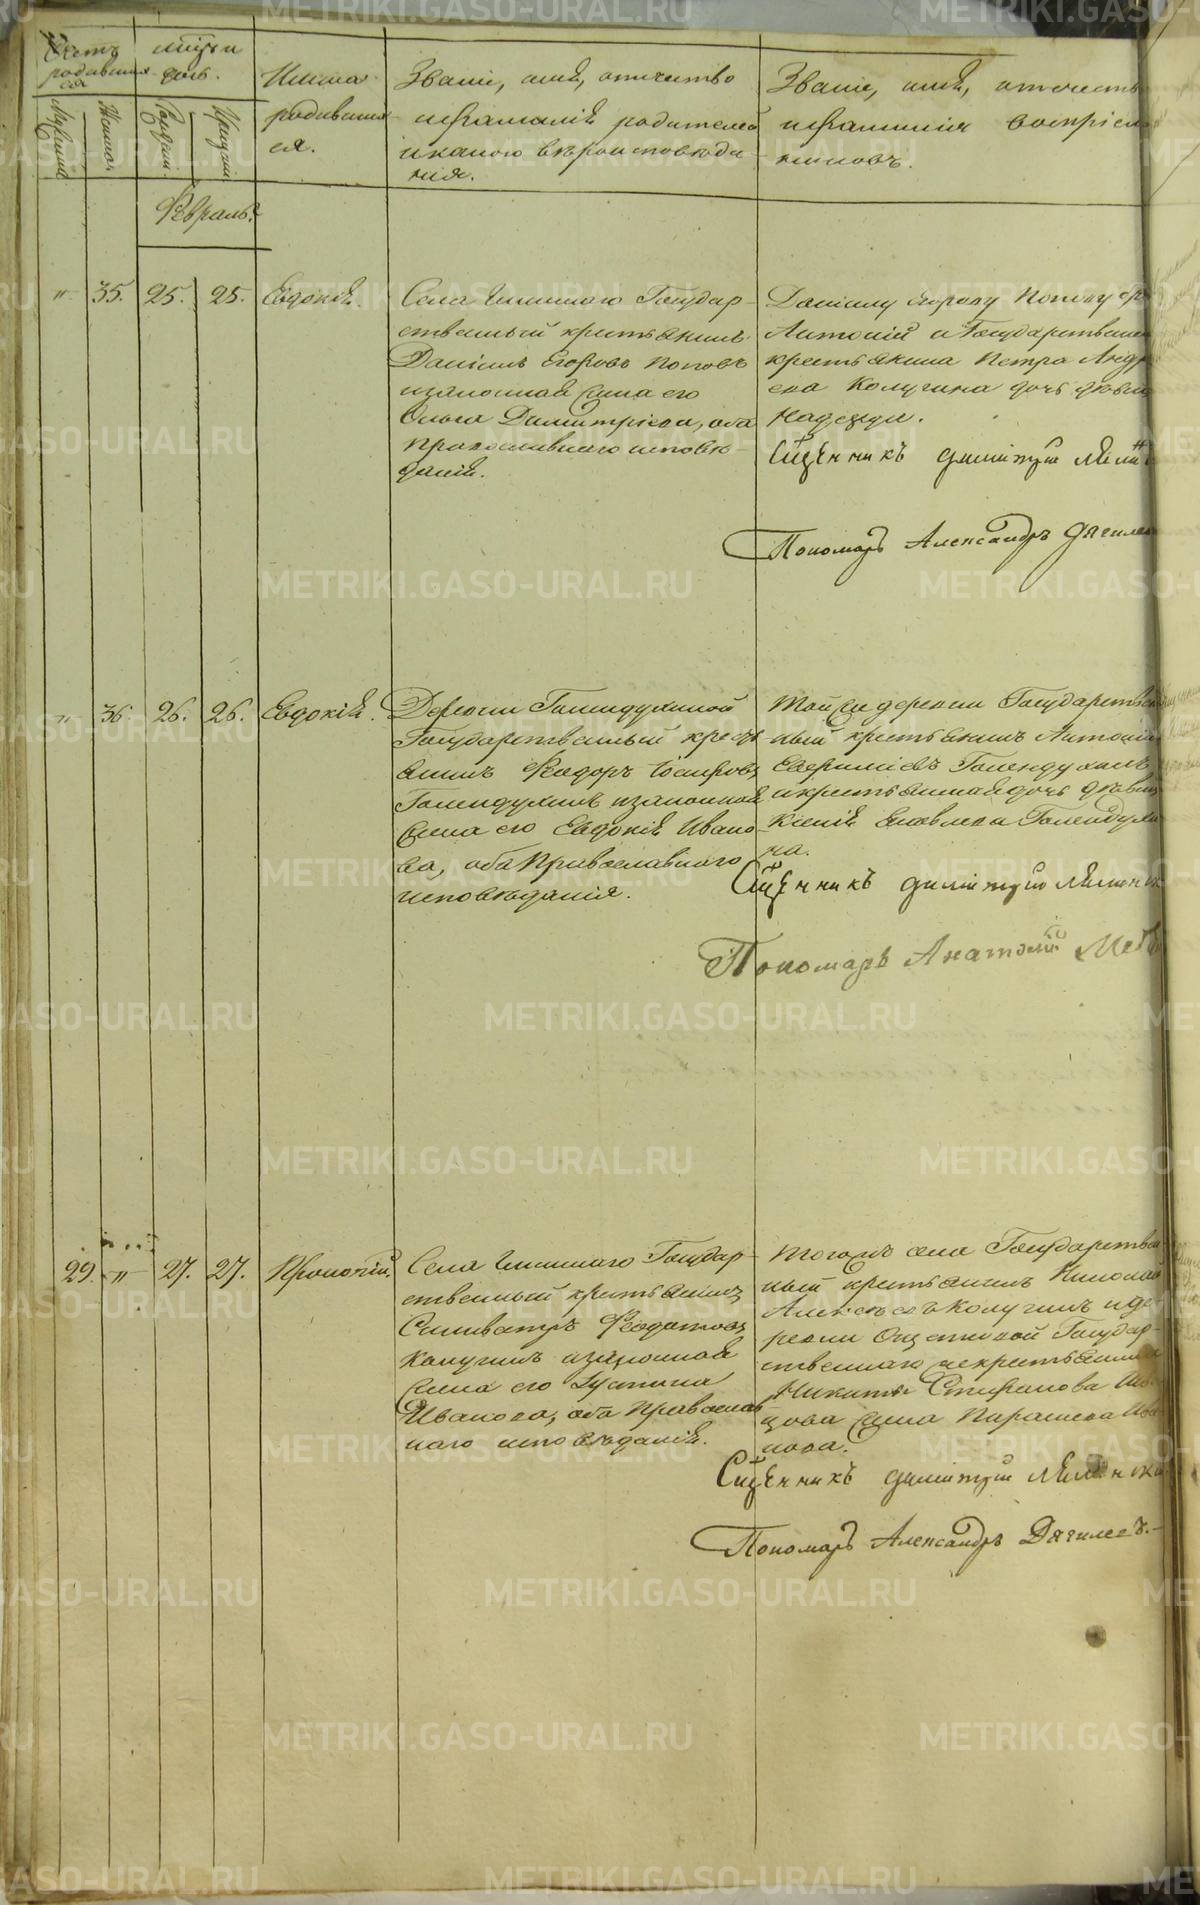 Счетъ родившихся
Мѣсяцъ и день.
Мужеска
Женска
Рожденія
Крещенія
Имена
родивших
ся.
Званіе, имя, отчество
и фамилія родителей
и какого вѣроисповѣда
нія.
Званіе, имя, отчество
и фамилія воспріем
никовъ.
Февраль.
" 35. 25. 25. Евдокія.
Села Государ
ственный крестьянинъ
Даніилъ Егоровъ Поповъ
и законная жена его
Ольга Димитріева, оба
православнаго исповѣ
данія.
Даніилу Егорову Попову
Антоній и Государственна
крестьянина Петра Андр
еева Калугина дочь дѣвица
Надежда.
Сщенникъ Димитрій
Пономарь Александръ Дягилев
" 36. 26. 26. Евдокія.
Деревни Голендухиной
Государственный кресть
янинъ Феодоръ
Голендухинъ и законная
жена его Евдокія Ивано
ва, оба Православнаго
исповѣданія.
Той же деревни Государствен
ный крестьянинъ Антоній
Голендухинъ
и крестьянская дочь дѣвица
Ксенія Яковлева Голендухи
на.
Сщенникъ Димитрій
Пономарь Анатолій
29. " 27. 27. Прокопій.
Села Государ
ственный крестьянинъ
Селиватръ Феодотовъ
Калугинъ и законная
жена его Устинья
Иванова, оба Православ
наго исповѣданія.
Тогожъ села Государствен
ный крестьянинъ Николай
Алексѣевъ Калугинъ и де
ревни Ощепковой Государ
ственнаго крестьянина
Никиты Стефанова
жена Параскева Ива
нова.
Сщенникъ Димитрій
Пономарь Александръ Дягилевъ.
METRIKI.GASO-URAL.RU